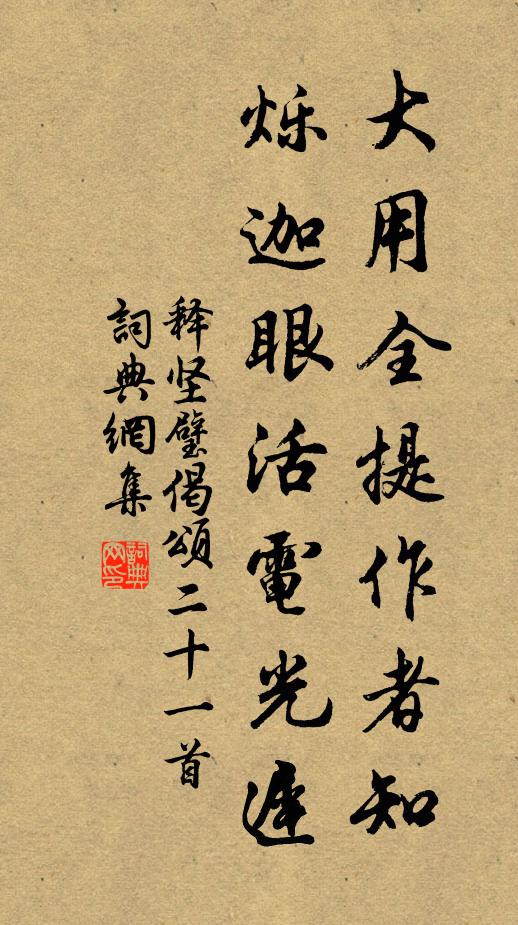 大用全提作者知
烁迦眼活電光遲
释坚璧偈頌二十一首
詞典網集
詞典網印